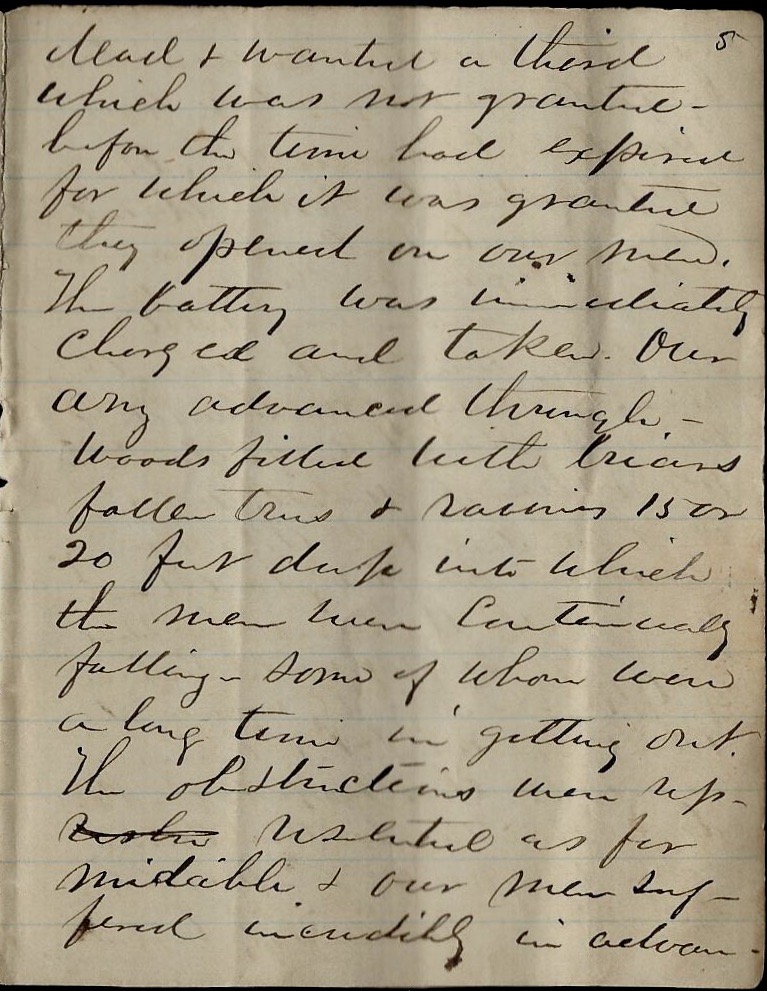 5
dead & wanted a third
which was not granted -
before the time had expired
for which it was granted
they opened on our men.
The battery was immediately
charged and taken. Our
army advanced through -
woods filled with briars
fallen trees & ravines 15 or
20 feet deep into which
the men were continualy
falling - some of whom were
a long time in getting out.
The obstructions were rep-
resented as for
midable & our men suf-
fered incredibly in advan-